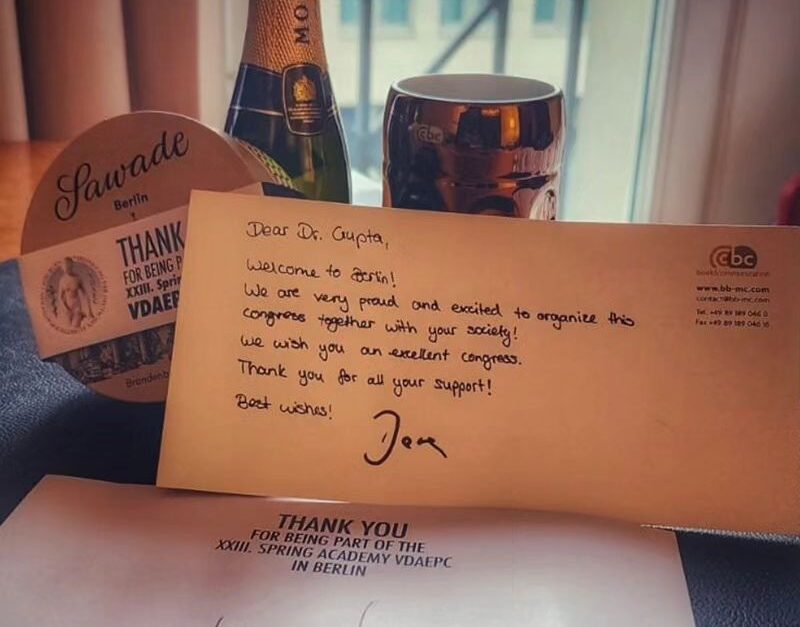 MO
Sawade
Berlin
THANK
FOR BEING P
XXIII. Sprin
VDAEP
Brandenb
cbc
Dear Dr. Gupta,
Welcome to Berlin!
We are very proud and excited to organize this
congress together with your society!
We wish you an excellent congress.
Thank you for all your support!
Best wishes!
cbc
www.bb-mc.com
contact@bb-mc.com
Tel. +49 89 189 046 0
Fax +49 89 189 046 16
THANK YOU
FOR BEING PART OF THE
XXIII. SPRING ACADEMY VDAEPC
IN BERLIN